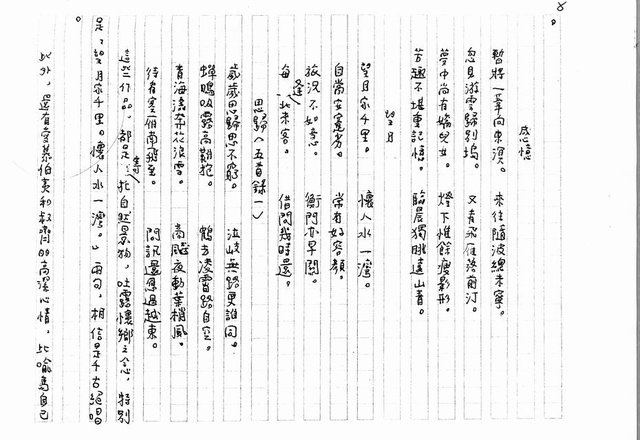 8
感憶
暫將一葦向東溟。 來往隨波總未寧。
忽見游雲歸別塢。 又看飛雁落前汀。
夢中尚有嬌兒女。 燈下惟餘瘦影形。
苦趣不堪重記憶。 臨晨獨眺遠山青。
望月
望月家千里。 懷人水一灣。
自當安蹇劣。 常有好容顏。
旅況不如意。 衡門亦早關。
每逢北來客。 借問幾時還。
思歸(五首錄一)
歲歲思歸思不窮。 泣岐無路更誰同。
蟬鳴吸露高難抱。 鶴去凌霄路自空。
青海濤奔花浪雪。 商飈夜動葉梢風。
待看塞雁南飛至。 問訊還應過越東。
這些作品,都是寄託自然景物,吐露懷鄉之念,特別
是「望月家千里。懷人水一灣。」兩句,相信是千古絕唱
。
此外,還有賣慕伯夷和叔齊的高潔心情,比喻為自己